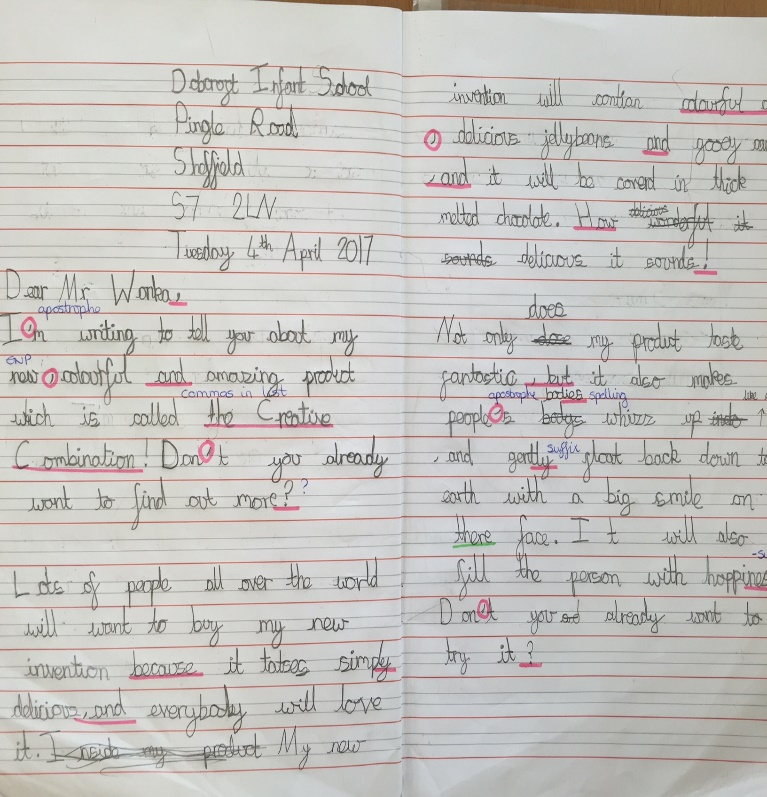 Dobcroyt Infant School
Pingle Road
Sheffield
S7 2LN
Tuesday 4th April 2017
Dear Mr Wonka,
apostrophe
I'm writing to tell you about my
ENP
new, colourful and amazing product
commas in list
wich is called the Creative
Combination! Don't you already
want to find out more? ?
Lots of people all over the world
will want to buy my new
invention because it tatses simply
delicious, and everybody will love
it. Inside my product My new
invention will contian colourful
, delicious jellybeans and gooey
, and it will be coverd in thick
melted chocolate. How delicious wonderful it
sounds delicious it sounds!
does
Not only dose my product taste
fantastic, but it also makes
apostrophe bodies spelling
people's bodys whizz up into ↑
suffix
, and gently float back down to
earth with a big smile on
there face. It will also
fill the person with happiness
Don't you already want to
try it?